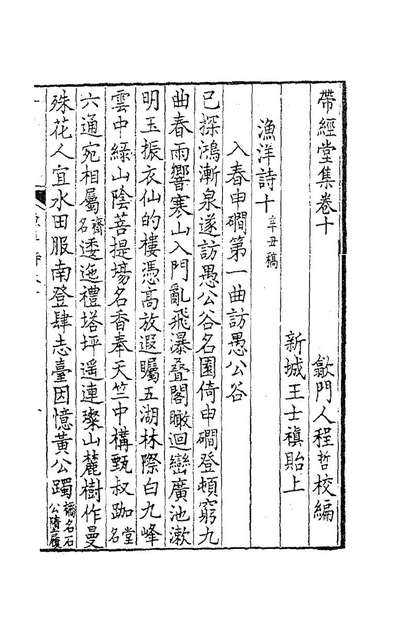 帶經堂集卷十
歙門人程哲校編
新城王士禛貽上
漁洋詩十 辛丑稿
入春申磵第一曲訪愚公谷
已探鴻漸泉遂訪愚公谷名園倚申磵登頓窮九
曲春雨響寒山入門亂飛瀑疊閣瞰迴巒廣池漱
明玉振衣仙的樓憑高放遐矚五湖林際白九峰
雲中綠山陰菩提場名香奉天竺中構甄叔跏堂名
六通宛相屬齋名逶迤禮塔坪遥連璨山麓樹作曼
殊花人宜水田服南登肆志臺因憶黃公躅橋名石公墮履